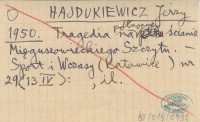 HAJDUKIEWICZ Jerzy
1950. Tragedia na północnej ścianie
Mięguszowieckiego Szczytu. –
Sport i Wczasy (Katowice) nr
29 (13 IV): , il.